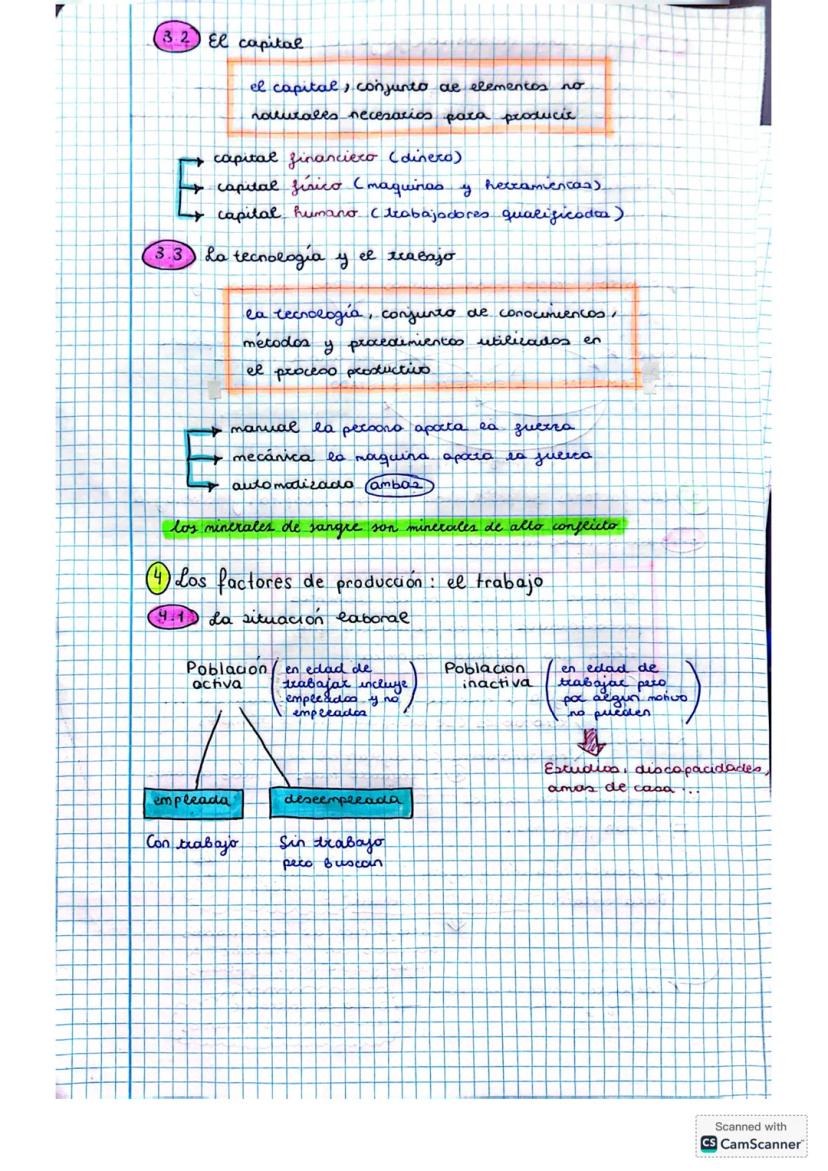 3.2 El capital
el capital, conjunto de elementos no
naturales necesarios para producir
capital financiero (dinero)
capital físico (maquinas y herramientas)
capital humano (trabajadores qualificados)
3.3 La tecnología y el trabajo
la tecnología, conjunto de conocimientos,
métodos y procedimientos utilizados en
el proceso productivo
manual la persona aporta la fuerza
mecánica la maquina aporta la fuerza
automatizado (ambas)
los minerales de sangre son minerales de alto conflicto
4 Los factores de producción: el trabajo
4.1 La situación laboral
Población activa (en edad de trabajar incluye empleados y no empleados)
Poblacion inactiva (en edad de trabajar pero por algun motivo no pueden)
Estudios, discapacidades,
amas de casa...
empleada
desempleada
Con trabajo
Sin trabajo
pero buscan
Scanned with
CS CamScanner